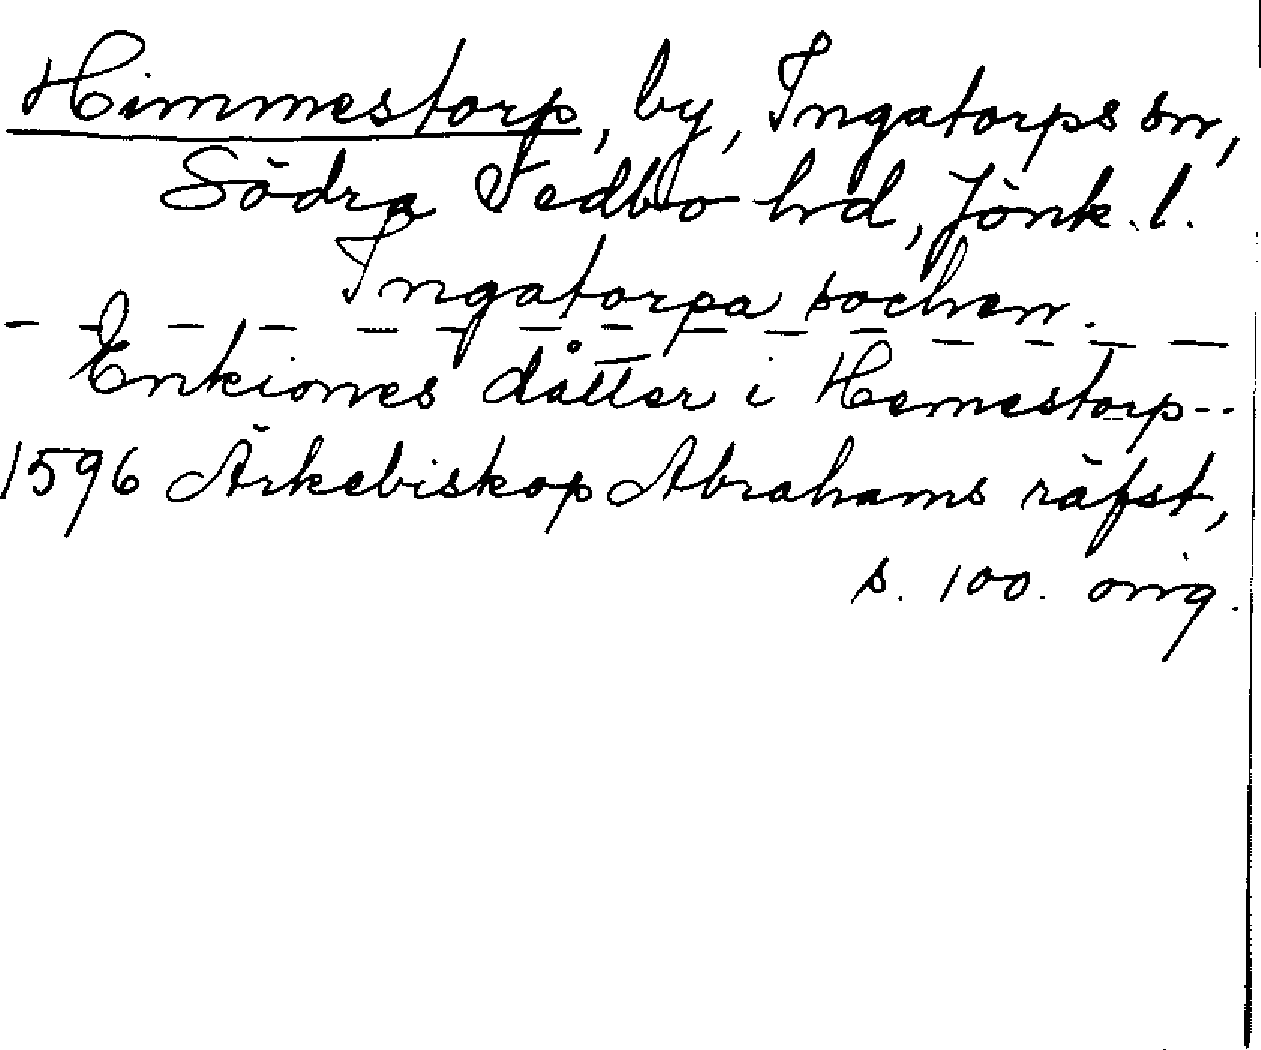 Himmestorp, by, Ingatorps sn,
Södra Vedbo hrd, Jönk. l.
Ingatorpa sochen.
- - - - - - - - - - - - - -
Enkiones dåtter i Hemestorp--
1596 Ärkebiskop Abrahams räfst,
s. 100. orig.